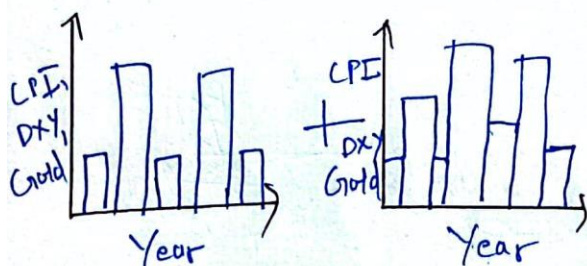 CPI,
DXY,
Gold
Year
+
CPI
DXY
Gold
Year